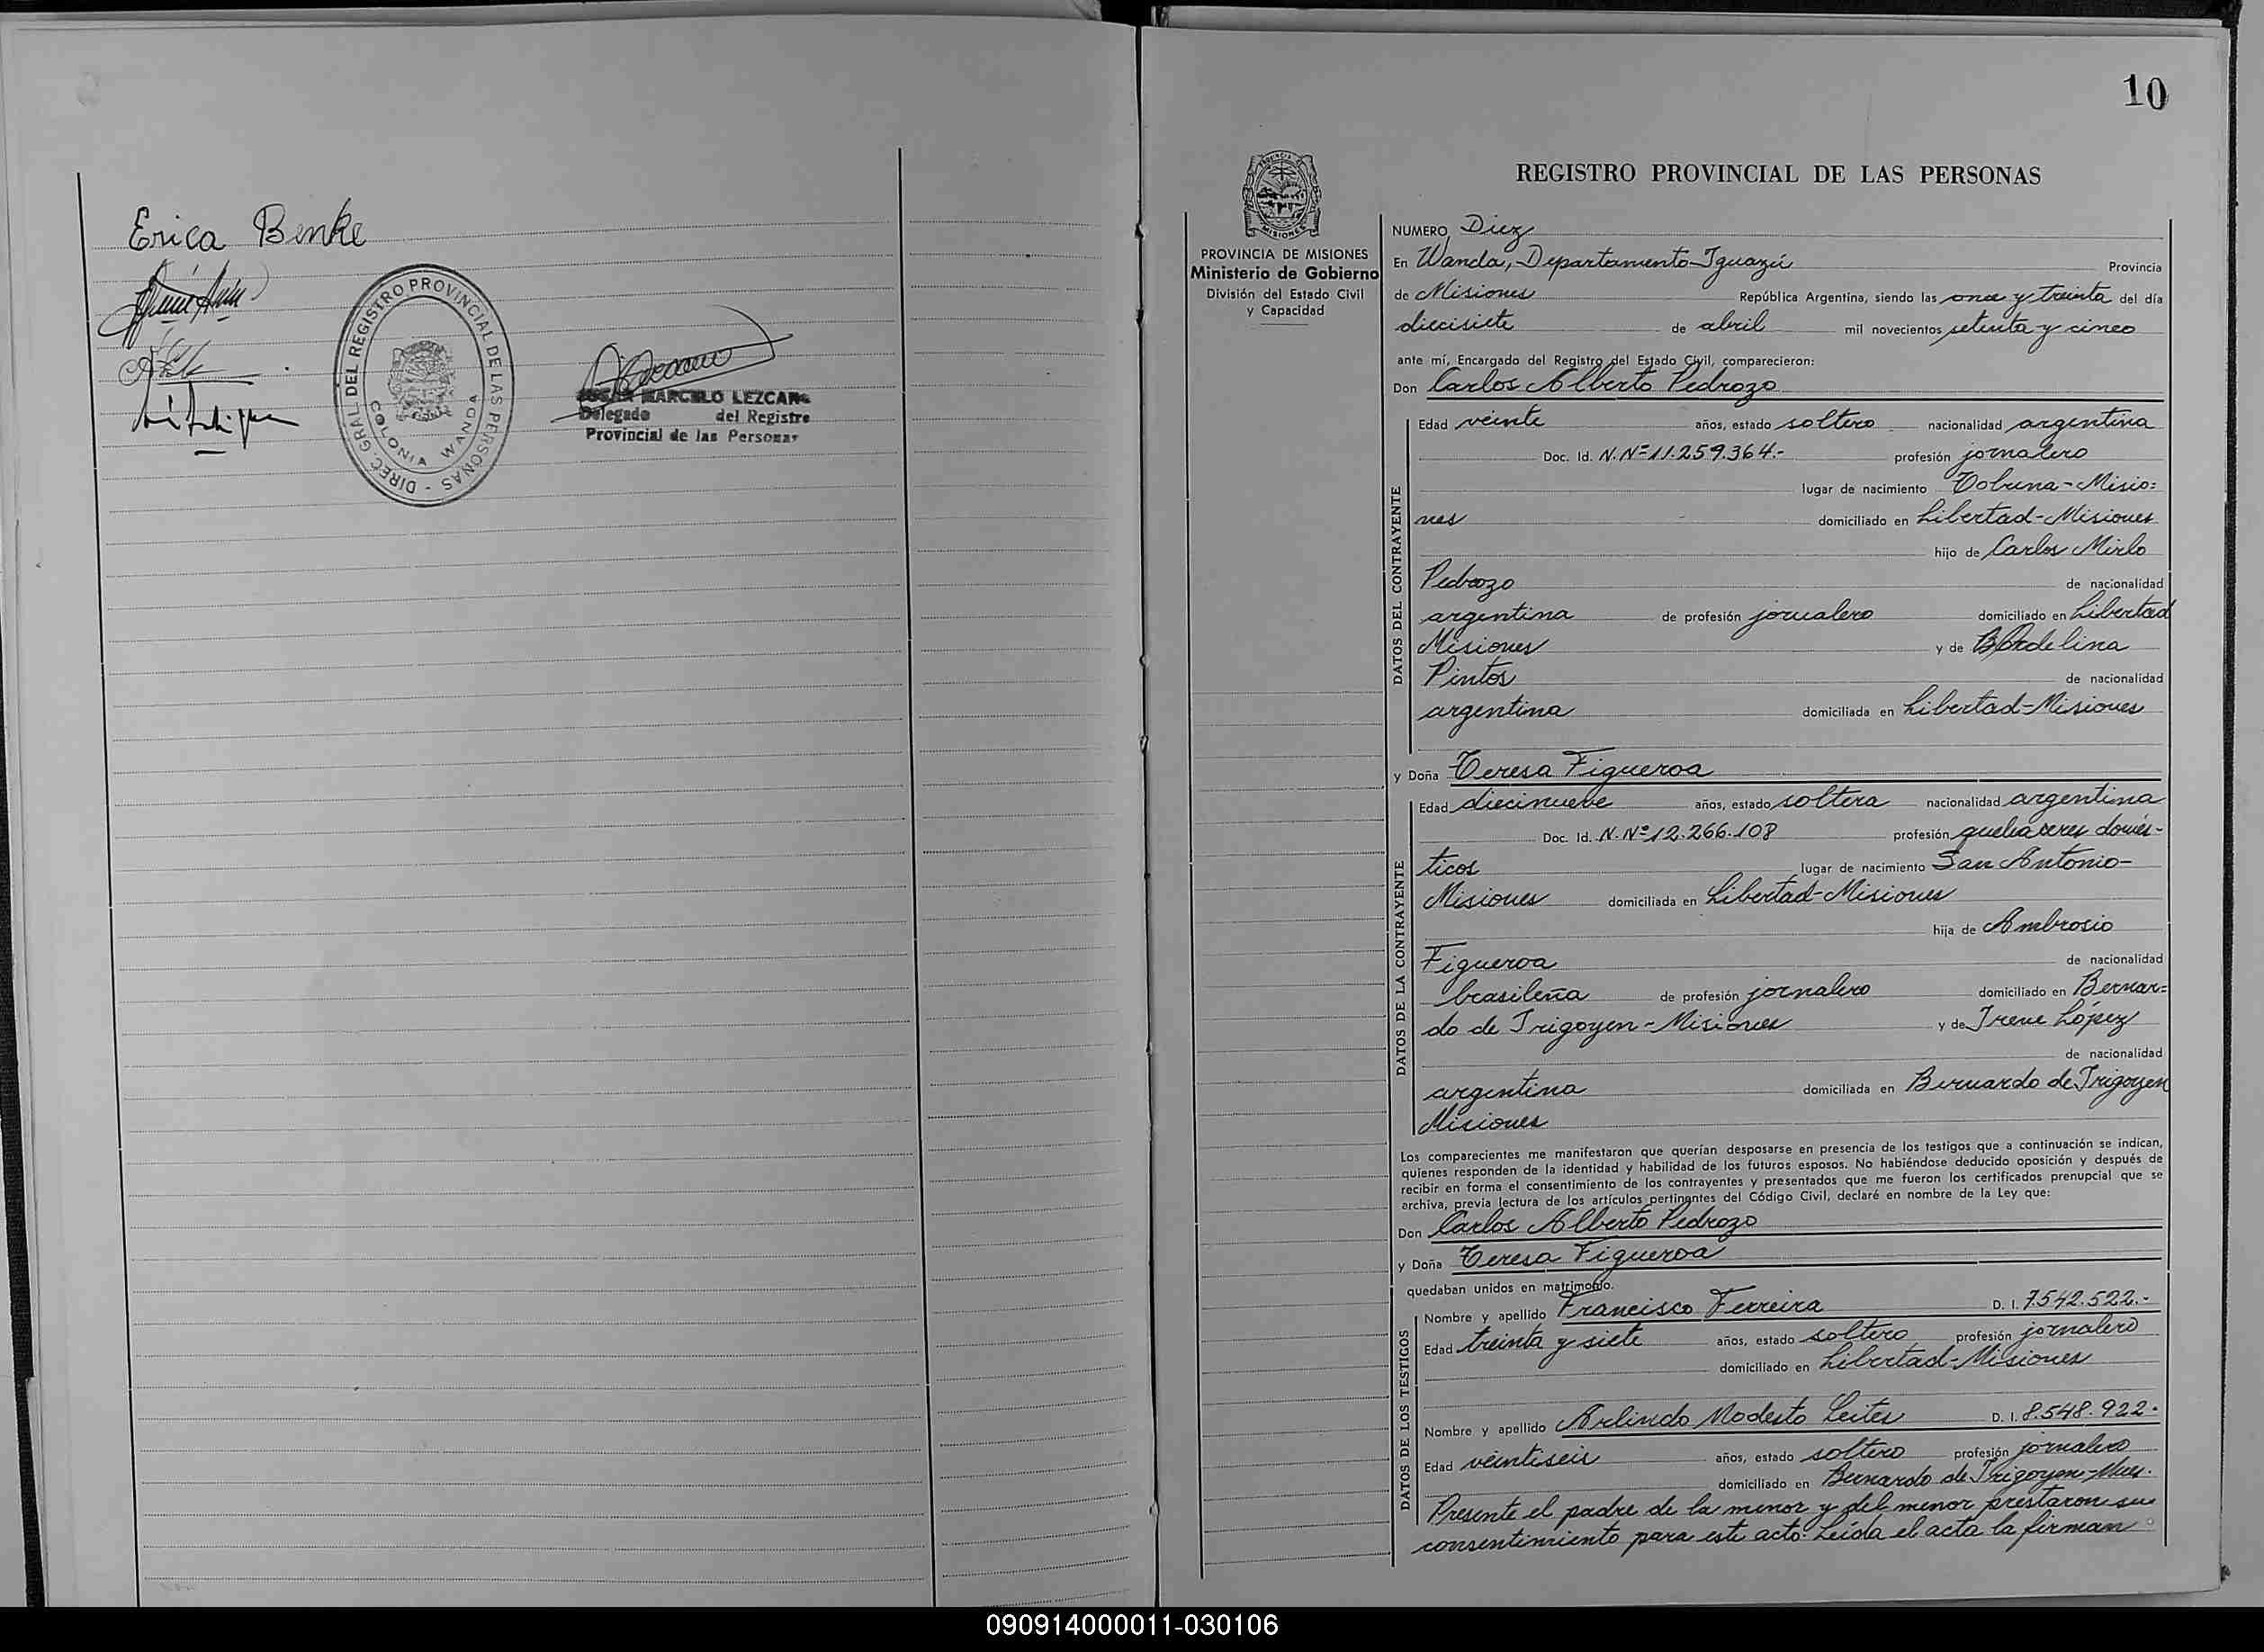 Erica Benke
DIREC. GRAL. DEL REGISTRO PROVINCIAL DE LAS PERSONAS -
COLONIA WANDA
MARCELO LEZCANO
Delegado del Registro
Provincial de las Personas
10
PROVINCIA DE MISIONES
Ministerio de Gobierno
División del Estado Civil
y Capacidad
REGISTRO PROVINCIAL DE LAS PERSONAS
NUMERO Diez
En Wanda, Departamento Iguazú Provincia
de Misiones República Argentina, siendo las once y treinta del día
diecisiete de abril mil novecientos setenta y cinco
ante mí, Encargado del Registro del Estado Civil, comparecieron:
Don Carlos Alberto Pedrozo
DATOS DEL CONTRAYENTE
Edad veinte años, estado soltero nacionalidad argentina
Doc. Id. N. Nº 11.259.364.- profesión jornalero
lugar de nacimiento Tobuna-Misio=
nes domiciliado en Libertad-Misiones
hijo de Carlos Mirlo
Pedrozo de nacionalidad
argentina de profesión jornalero domiciliado en Libertad
Misiones y de
Pintos de nacionalidad
argentina domiciliada en Libertad-Misiones
y Doña Teresa Figueroa
DATOS DE LA CONTRAYENTE
Edad diecinueve años, estado soltera nacionalidad argentina
Doc. Id. N. Nº 12.266.108 profesión quehaceres domés-
ticos lugar de nacimiento San Antonio-
Misiones domiciliada en Libertad-Misiones
hija de Ambrosio
Figueroa de nacionalidad
brasileña de profesión jornalero domiciliado en Bernar=
do de Irigoyen-Misiones y de Irene López
de nacionalidad
argentina domiciliada en Bernardo de Irigoyen
Misiones
Los comparecientes me manifestaron que querían desposarse en presencia de los testigos que a continuación se indican,
quienes responden de la identidad y habilidad de los futuros esposos. No habiéndose deducido oposición y después de
recibir en forma el consentimiento de los contrayentes y presentados que me fueron los certificados prenupcial que se
archiva, previa lectura de los artículos pertinentes del Código Civil, declaré en nombre de la Ley que:
Don Carlos Alberto Pedrozo
y Doña Teresa Figueroa
quedaban unidos en matrimonio.
DATOS DE LOS TESTIGOS
Nombre y apellido Francisco Ferreira D. I. 7.542.522.-
Edad treinta y siete años, estado soltero profesión jornalero
domiciliado en Libertad-Misiones
Nombre y apellido Arlindo Modesto Leites D. I. 8.548.922.
Edad veintiseis años, estado soltero profesión jornalero
domiciliado en Bernardo de Irigoyen-Mnes.
Presente el padre de la menor y del menor prestaron su
consentimiento para este acto. Leída el acta la firman
090914000011-030106